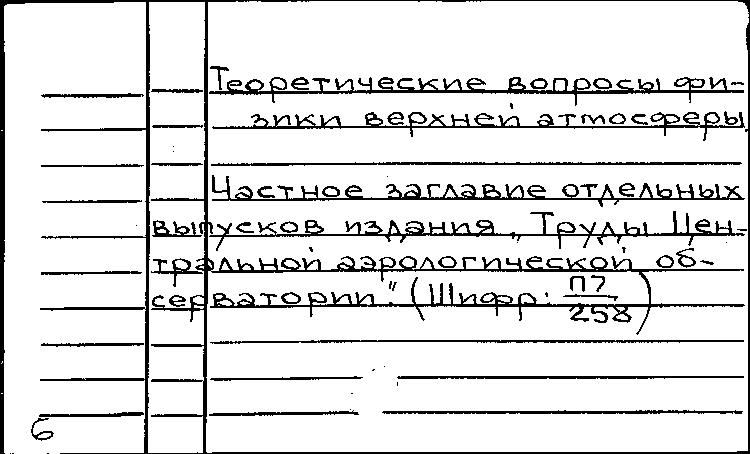 Теоретические вопросы фи-
зики верхней атмосферы
Частное заглавие отдельных
выпусков издания „Труды Цен-
тральной аэрологической об-
серватории." (Шифр: П7/258)
6